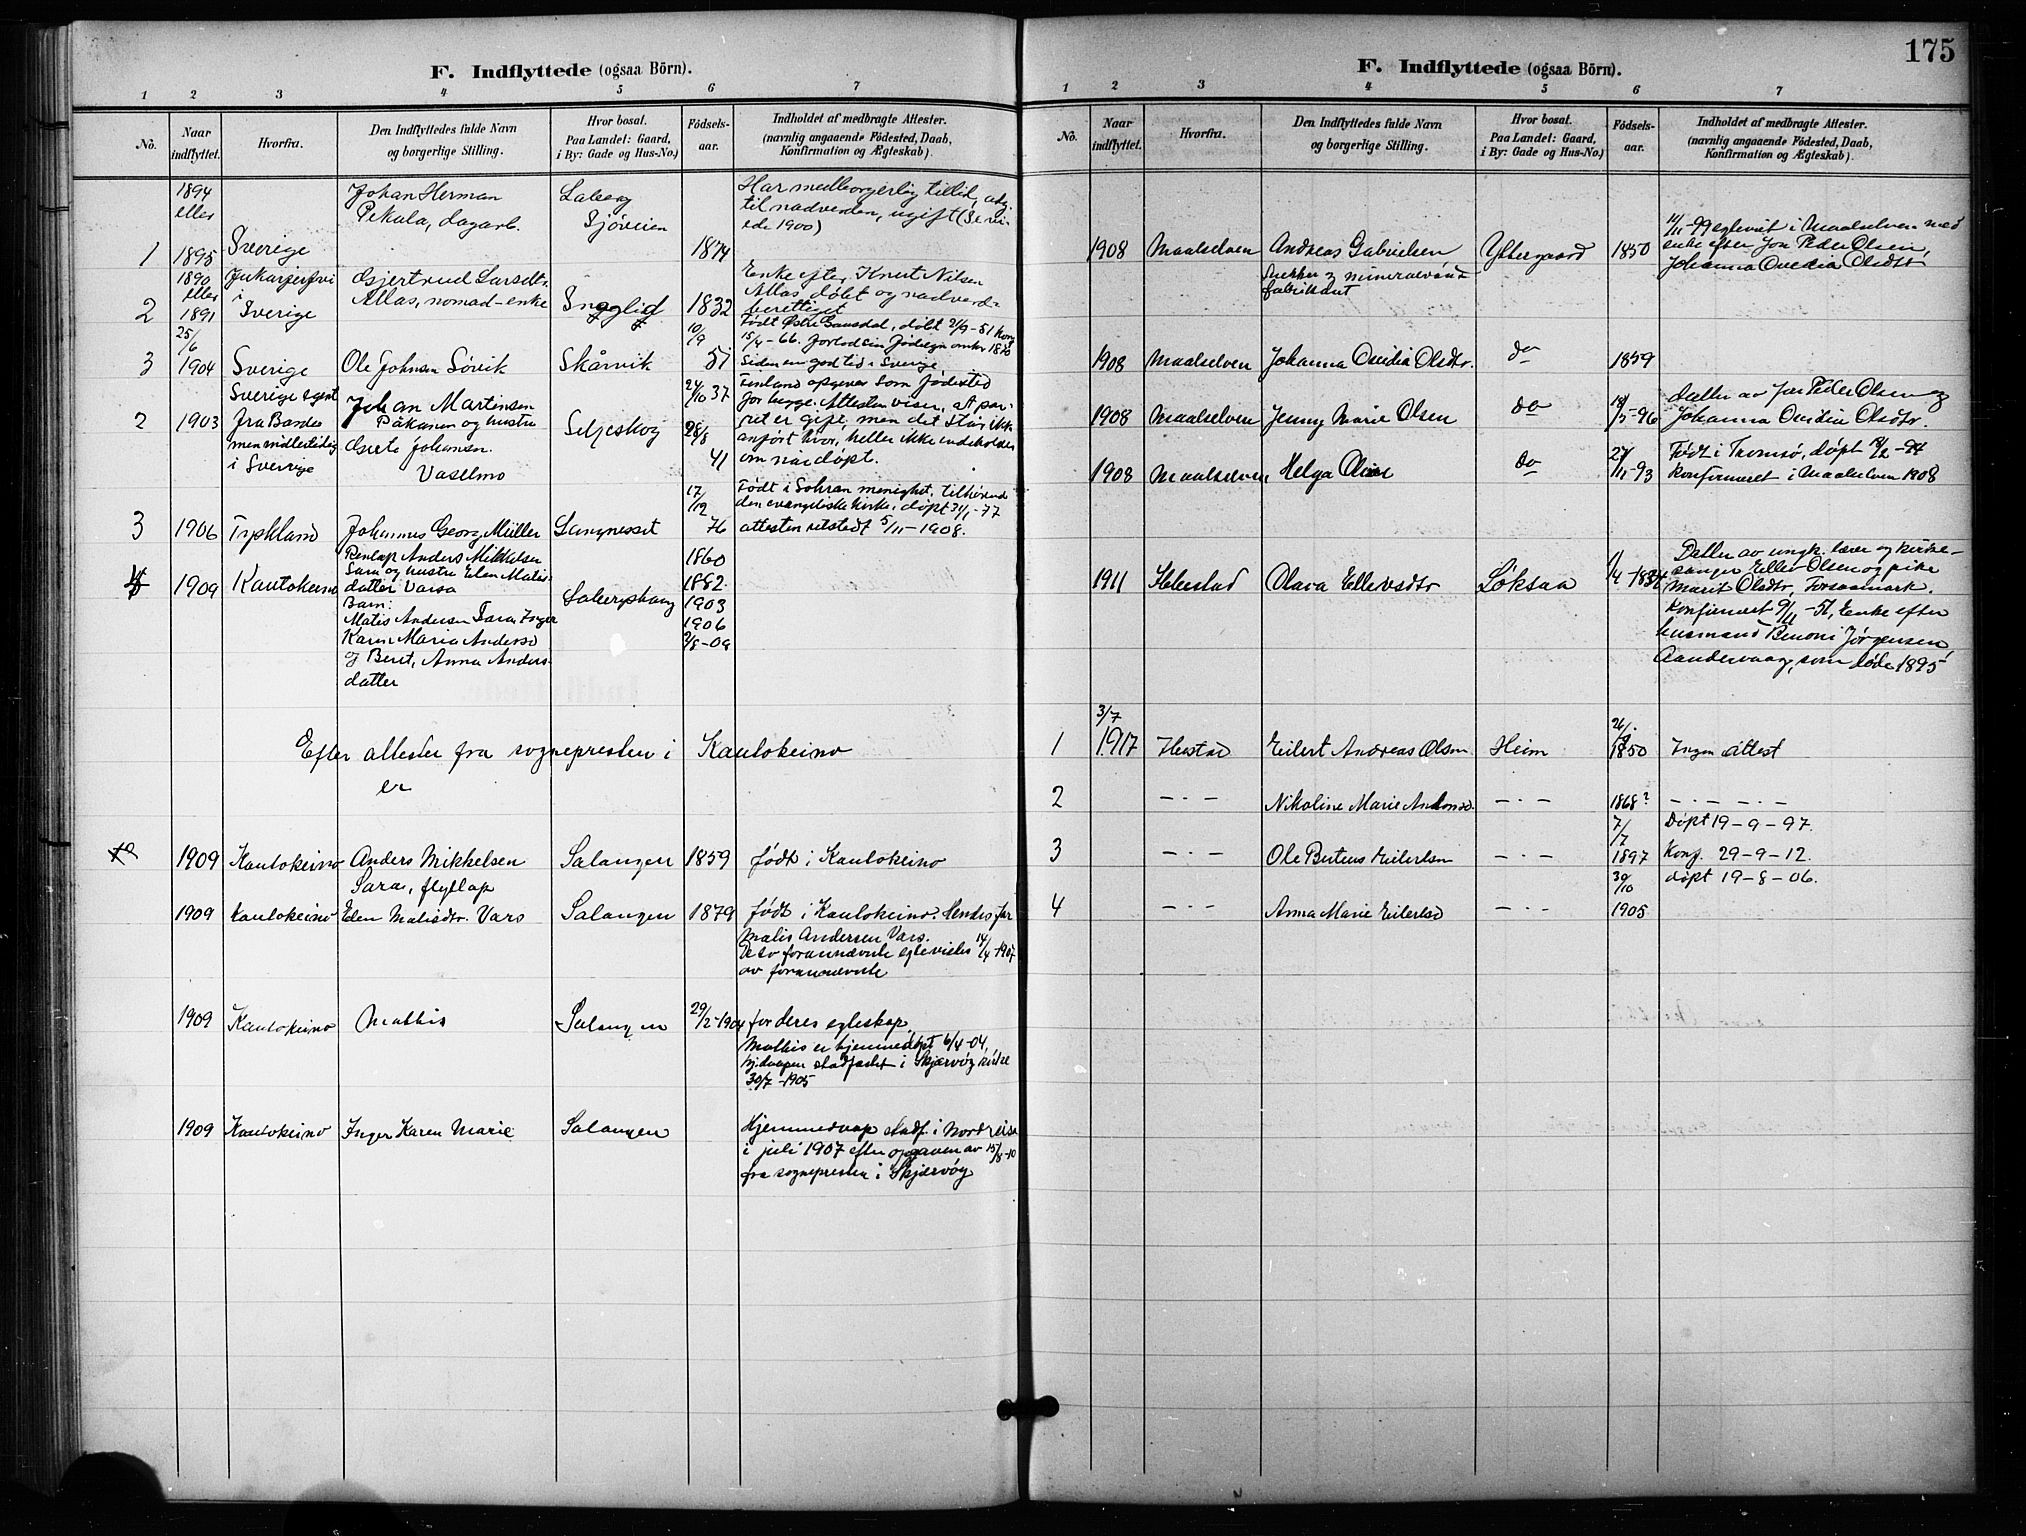 175
F. Indflyttede (ogsaa Börn).
1 2 3 4 5 6 7
No.
Naar indflyttet.
Hvorfra.
Den Indflyttedes fulde Navn
og borgerlige Stilling.
Hvor bosat.
Paa Landet: Gaard,
i By: Gade og Hus-No.)
Fødsels-
aar.
Indholdet af medbragte Attester.
(navnlig angaaende Födested, Daab,
Konfirmation og Ægteskab).
1 1894 eller 1895 Sverige
Johan Herman
Pekula, dagarb.
Laberg
Sjøveien
1874
Har medborgerlig tillid, adg.
til nadverden, ugift
1900)
2 1890 eller 1891 Jukarjerfvi i Sverige
Gjertrud Larsdtr.
Allas, nomad-enke
1832
Enke efter Knut Nilsen
Allas døbt og nadverd-
berettiget
3 25/6 1904 Sverige Ole Johnsen Sörvik Skårvik 10/9 51
Født Østre Gausdal, døbt 21/9-51 konf
15/4-66. forlod sin fødeegn omkr 1870
Siden en god tid i Sverige
2 1903 Sverige sagt
fra Bardo
men midlertidig
i Sverige
Johan Martensen
Påkanen og hustru
Grete Johansen
Vaselmo
Seljeskog
24/10 37
28/8
41
Finland opgives som fødested
for begge. Attesten viser, at par-
ret er gift, men det står ikke
anført hvor, heller ikke indeholder
om når døpt.
3 1906 Tyskland Johannes Georg Müller Langnesset 17/12 76
Født i Sohran menighet, tilhörende
den evangeliske kirke, døpt 31/1-77
attesten utstedt 5/11-1908.
1909 Kautokeino
Renlap Anders Mikkelsen
Sara og hustru Elen Matis-
datter Varsa
Barn:
Matis Andersen Sara, Inger
Karen Maria Andersd
og Beret, Anna Anders-
datter
1860
1882
1903
1906
2/8-09
Efter attester fra sognepresten i Kautokeino
er
1909 Kautokeino Anders Mikkelsen Salangen 1859 født i Kautokeino
Sara, flytlap
1909 Kautokeino Elen Matisdtr. Vars Salangen 1879 født i Kautokeino. Hendes far
Matis Andersen Vars.
De to forannævnte egteviedes 14/4-1907
av forannævnte
1909 Kautokeino Mathis Salangen 29/2-1904 for deres egteskap.
Mathis er hjemmedøpt 6/4-04,
hj.daapen stadfæstet i Skjærvøy kirke
30/7-1905
1909 Kautokeino Inger Karen Marie Salangen
Hjemmedaap stadf. i Nordreisa
i juli 1907 efter opgaven av 15/8-10
fra sognepresten i Skjærvøy
F. Indflyttede (ogsaa Börn).
1 2 3 4 5 6 7
No.
Naar indflyttet.
Hvorfra.
Den Indflyttedes fulde Navn
og borgerlige Stilling.
Hvor bosat.
Paa Landet: Gaard,
i By: Gade og Hus-No.)
Fødsels-
aar.
Indholdet af medbragte Attester.
(navnlig angaaende Födested, Daab,
Konfirmation og Ægteskab).
1908 Maalselven Andreas Gabrielsen Yttergaard 1850
mineralvand
fabrikant
11/11-99 egteviet i Maalselven med
enke efter Jon Peder Olsen,
Johanna Ovedia Olsdtr
1908 Maalselven Johanna Ovedia Olsdtr. do 1859
1908 Maalselven Jenny Marie Olsen do 18/5-96
Datter av Jon Peder Olsen og
Johanna Ovidia Olsdtr.
1908 Maalselven Helga Olsen do 27/11-93
Født i Tromsø, døpt 18/2-94
konfirmeret i Maalselven 1908
1911 Ibbestad Olava Ellevsdtr Löksaa 1/4-1834
Datter av ungk. lærer og kirke-
sanger Ellev Olsen og pike
Marit Olsdtr, Forsaamark.
Konfirmert 9/11-51, Enke efter
husmand Benoni Jørgensen,
Aandervaag, som døde 1895
1 3/7 1917 Ibestad Eilert Andreas Olsen Heim 26/8 1850 Ingen Attest
2 — · — Nikoline Marie Andersd. — · — 1868? — · — · —
3 — · — Ole Berteus Eilertsen — · — 7/7 1897
Döpt 19-9-97.
Konf. 29-9-12.
4 — · — Anna Marie Eilertsd — · — 30/10 1905
døpt 19-8-06.